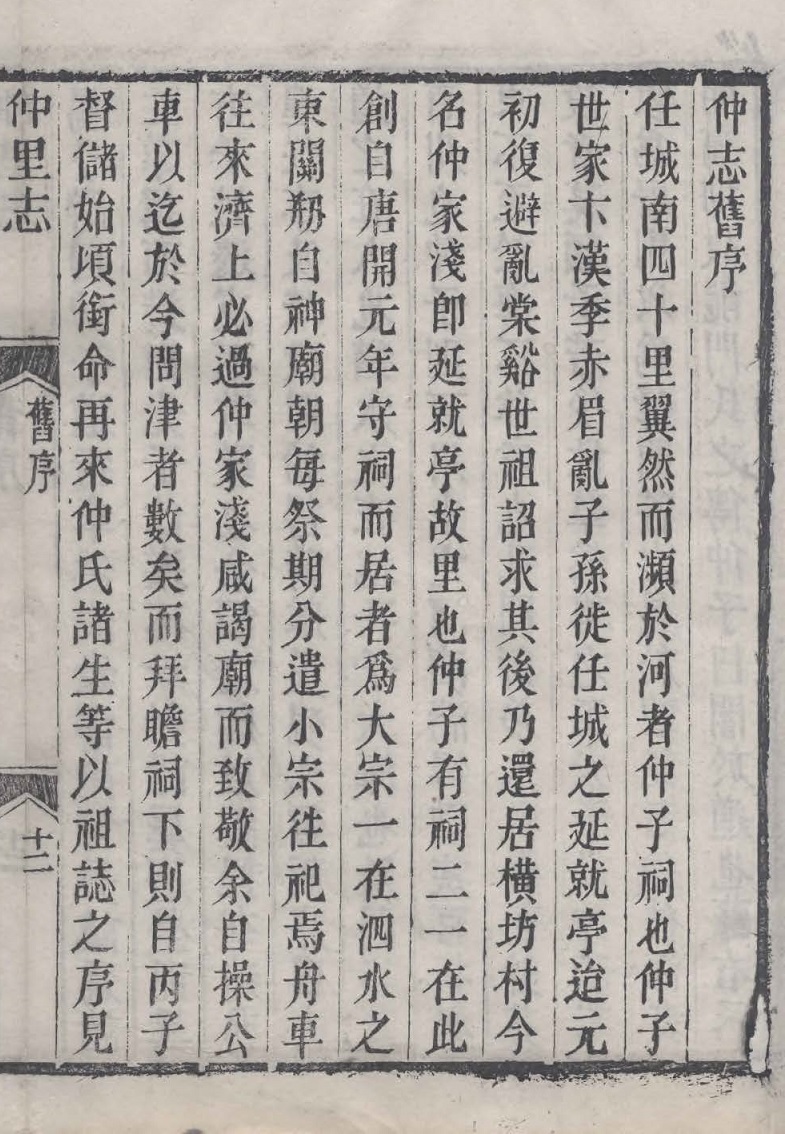 仲志舊序
任城南四十里翼然而瀕於河者仲子祠也仲子
世家卞漢季赤眉亂子孫徙任城之延就亭迨元
初復避亂棠谿世祖詔求其後乃還居橫坊村今
名仲家淺即延就亭故里也仲子有祠二一在此
創自唐開元年守祠而居者爲大宗一在泗水之
東關剏自神廟朝每祭期分遣小宗徃祀焉舟車
往來濟上必過仲家淺咸謁廟而致敬余自操公
車以迄於今問津者數矣而拜瞻祠下則自丙子
督儲始頃銜命再來仲氏諸生等以祖誌之序見
仲里志
舊序
十二